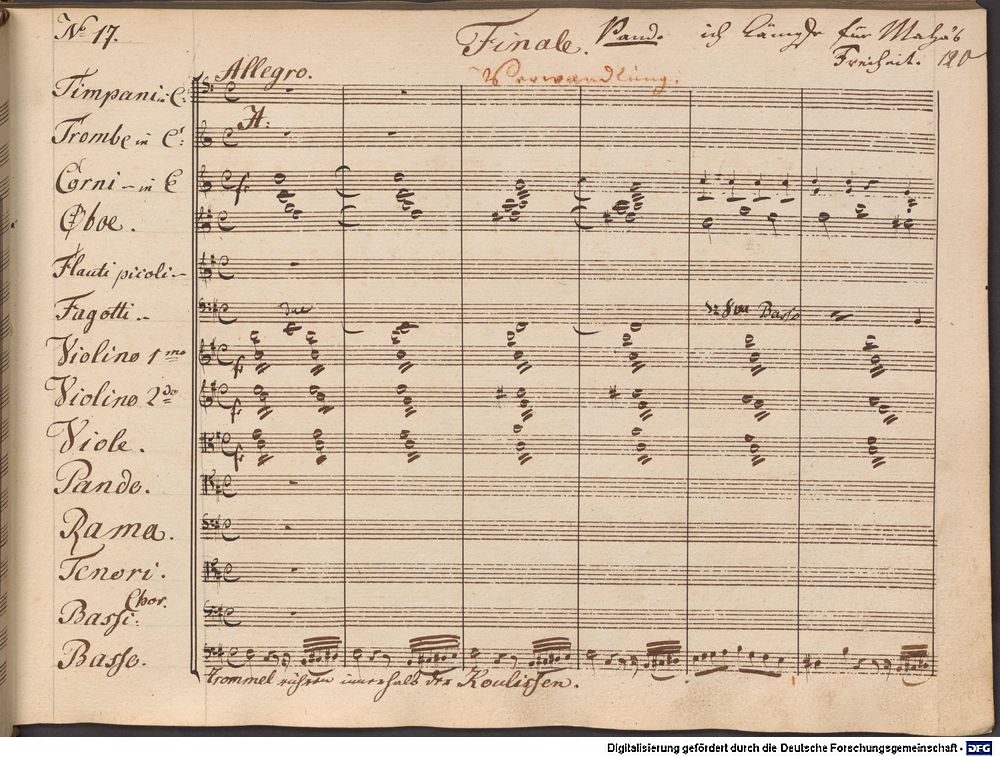 No 17.
Finale. Pando. ich kämpfe für Maha's
Freiheit. 120
Allegro.
Verwandlung.
Timpani in C:
Trombe in C:
Corni - in C
Oboe.
Flauti picoli -
Fagotti -
Basso
Violino 1mo
Violino 2do
Viole.
Pando.
Rama.
Tenori.
Chor.
Bassi:
Basso.
Trommel rühren innerhalb der Koulissen.
Digitalisierung gefördert durch die Deutsche Forschungsgemeinschaft - DFG